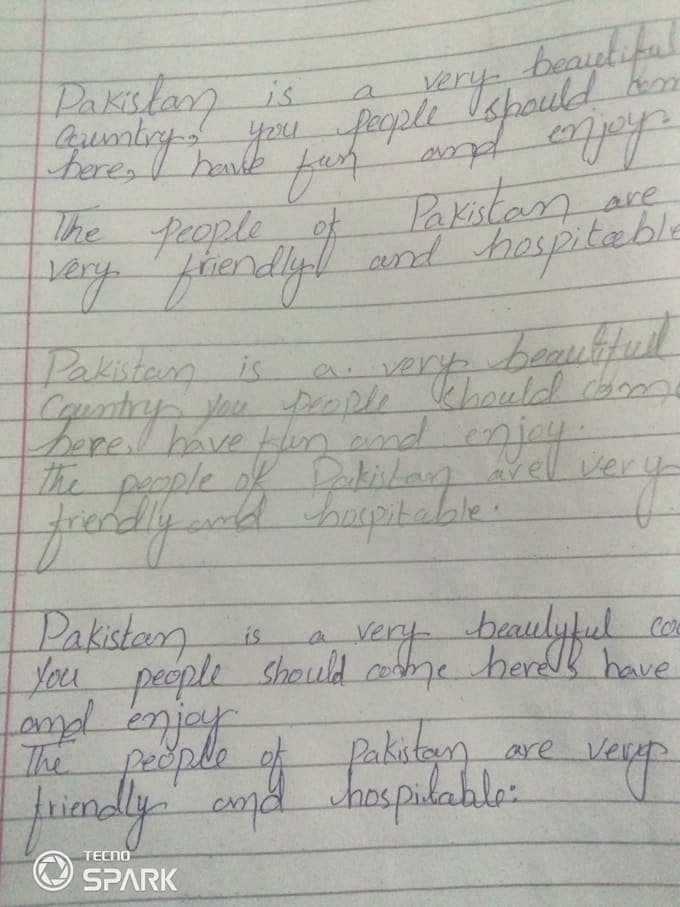 Pakistan is a very beautiful
Country, you people should com
here, have fun and enjoy.
The people of Pakistan are
very friendly and hospitable
Pakistan is a very beautiful
Country you people should come
here, have fun and enjoy.
The people of Pakistan are very
friendly and hospitable.
Pakistan is a very beautyful co
You people should come here have
and enjoy.
The people of Pakistan are very
friendly and hospitable:
TECNO
SPARK